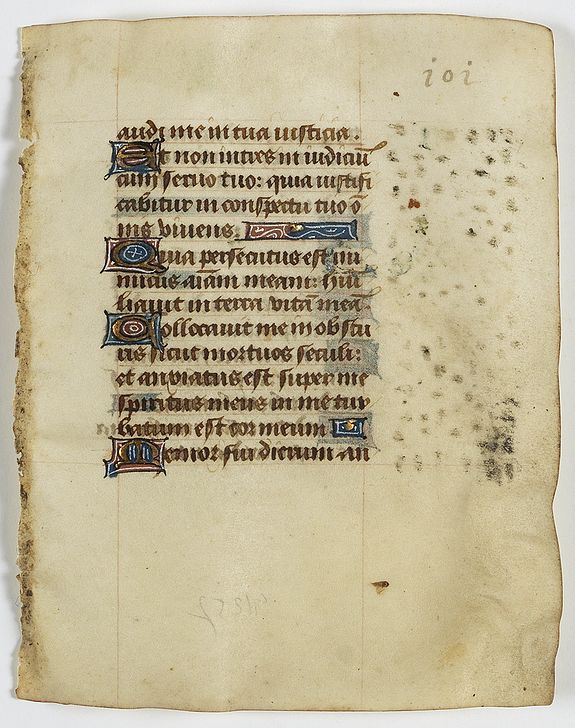 ioi
audi me in tua iusticia:
Et non intres in iudiciū
cum seruo tuo: quia iustifi
cabitur in conspectu tuo ō
nis viuens.
Quia persecutus est ini
micus aīam meam: hūi
liauit in terra vitā meā
Collocauit me in obscu
ris sicut mortuos seculi:
et anxiatus est super me
spiritus meus in me tur
batum est cor meum
Memor fui dierum an